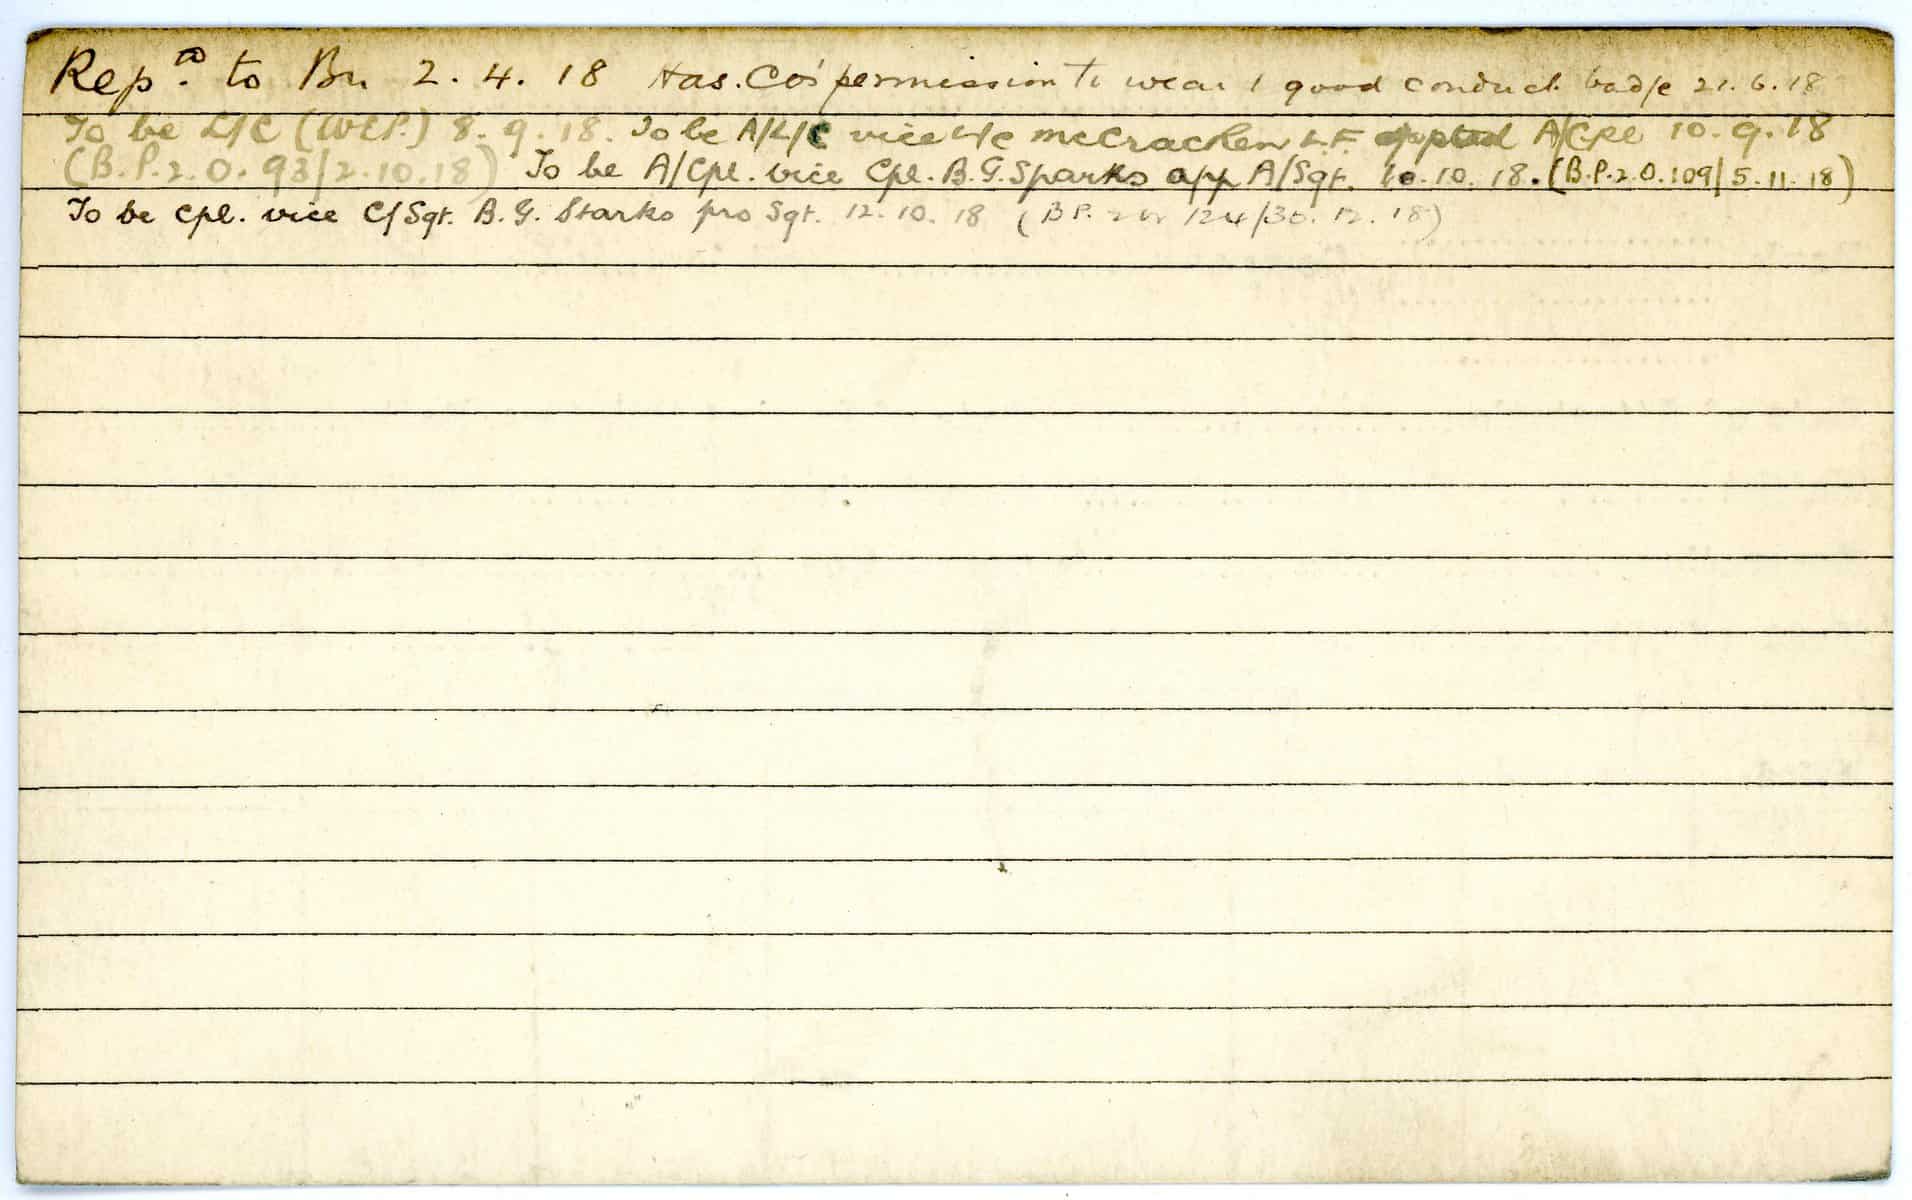 Rep^d. to Bn 2.4.18 Has. Co's permission to wear 1 good conduct badge 21.6.18
To be L/C (W.E.P.) 8.9.18. To be A/L/C vice L/c McCracken L.F. A/Cpl 10.9.18
(B.P.2.O.93/2.10.18) To be A/Cpl. vice Cpl. B.G. Sparks app A/Sgt. 10.10.18. (B.P.2.O.109/5.11.18)
To be Cpl. vice C/Sgt. B.G. Starks pro Sgt. 12.10.18 (B P. 124/30.12.18)